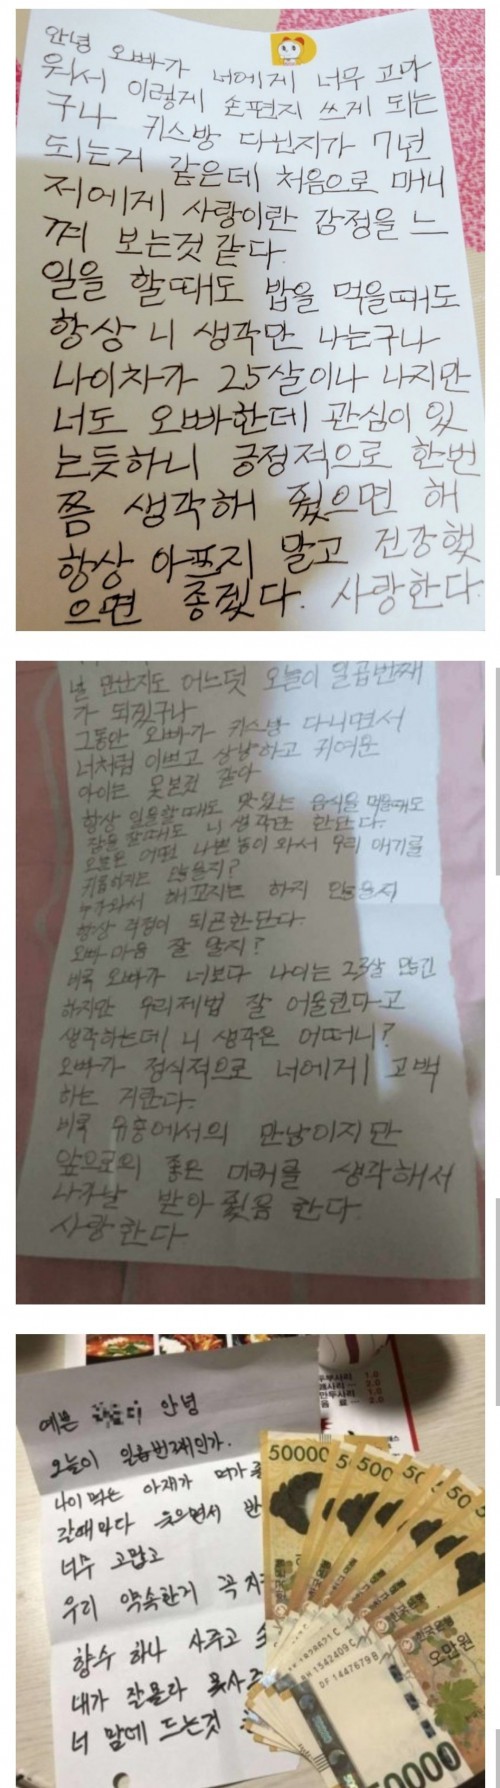 안녕 오빠가 너에게 너무 고마
워서 이렇게 손편지 쓰게 되는
구나 키스방 다닌지가 7년
되는거 같은데 처음으로 매니
저에게 사랑이란 감정을 느
껴 보는것 같다.
일을 할때도 밥을 먹을때도
항상 니 생각만 나는구나
나이차가 25살이나 나지만
너도 오빠한데 관심이 있
는듯하니 긍정적으로 한번
쯤 생각해 줬으면 해
항상 아프지 말고 건강했
으면 좋겠다. 사랑한다.
널 만난지도 어느덧 오늘이 일곱번째
가 되겠구나
그동안 오빠가 키스방 다니면서
너처럼 이쁘고 상냥하고 귀여운
아이는 못본것 같아
항상 일을할때도 맛있는 음식을 먹을때도
잠을 잘때도 니 생각만 한단다.
오늘은 어떤 나쁜놈이 와서 우리 애기를
괴롭히지는 않을지?
누가와서 해꼬지는 하지 않을지
항상 걱정이 되곤한단다.
오빠 마음 잘 알지?
비록 오빠가 너보다 나이는 23살 많긴
하지만 우리제법 잘 어울린다고
생각하는데 니 생각은 어떠니?
오빠가 정식적으로 너에게 고백
하는 거란다.
비록 유흥에서의 만남이지만
앞으로의 좋은 미래를 생각해서
나의날 받아줬음 한다.
사랑한다
예쁜 안녕
오늘이 일곱번째인가.
나이 먹은 아재가 머가 좋
갈때마다 웃으면서 반
너무 고맙고
우리 약속한거 꼭 지키
향수 하나 사주고
내가 잘몰라 못사주
너 맘에 드는것
두부사리 1.0
2.0
만두사리 1.0
음 료 2.0
50000
500
한국은행
오만원
1542409
DF 1447679 B
0000